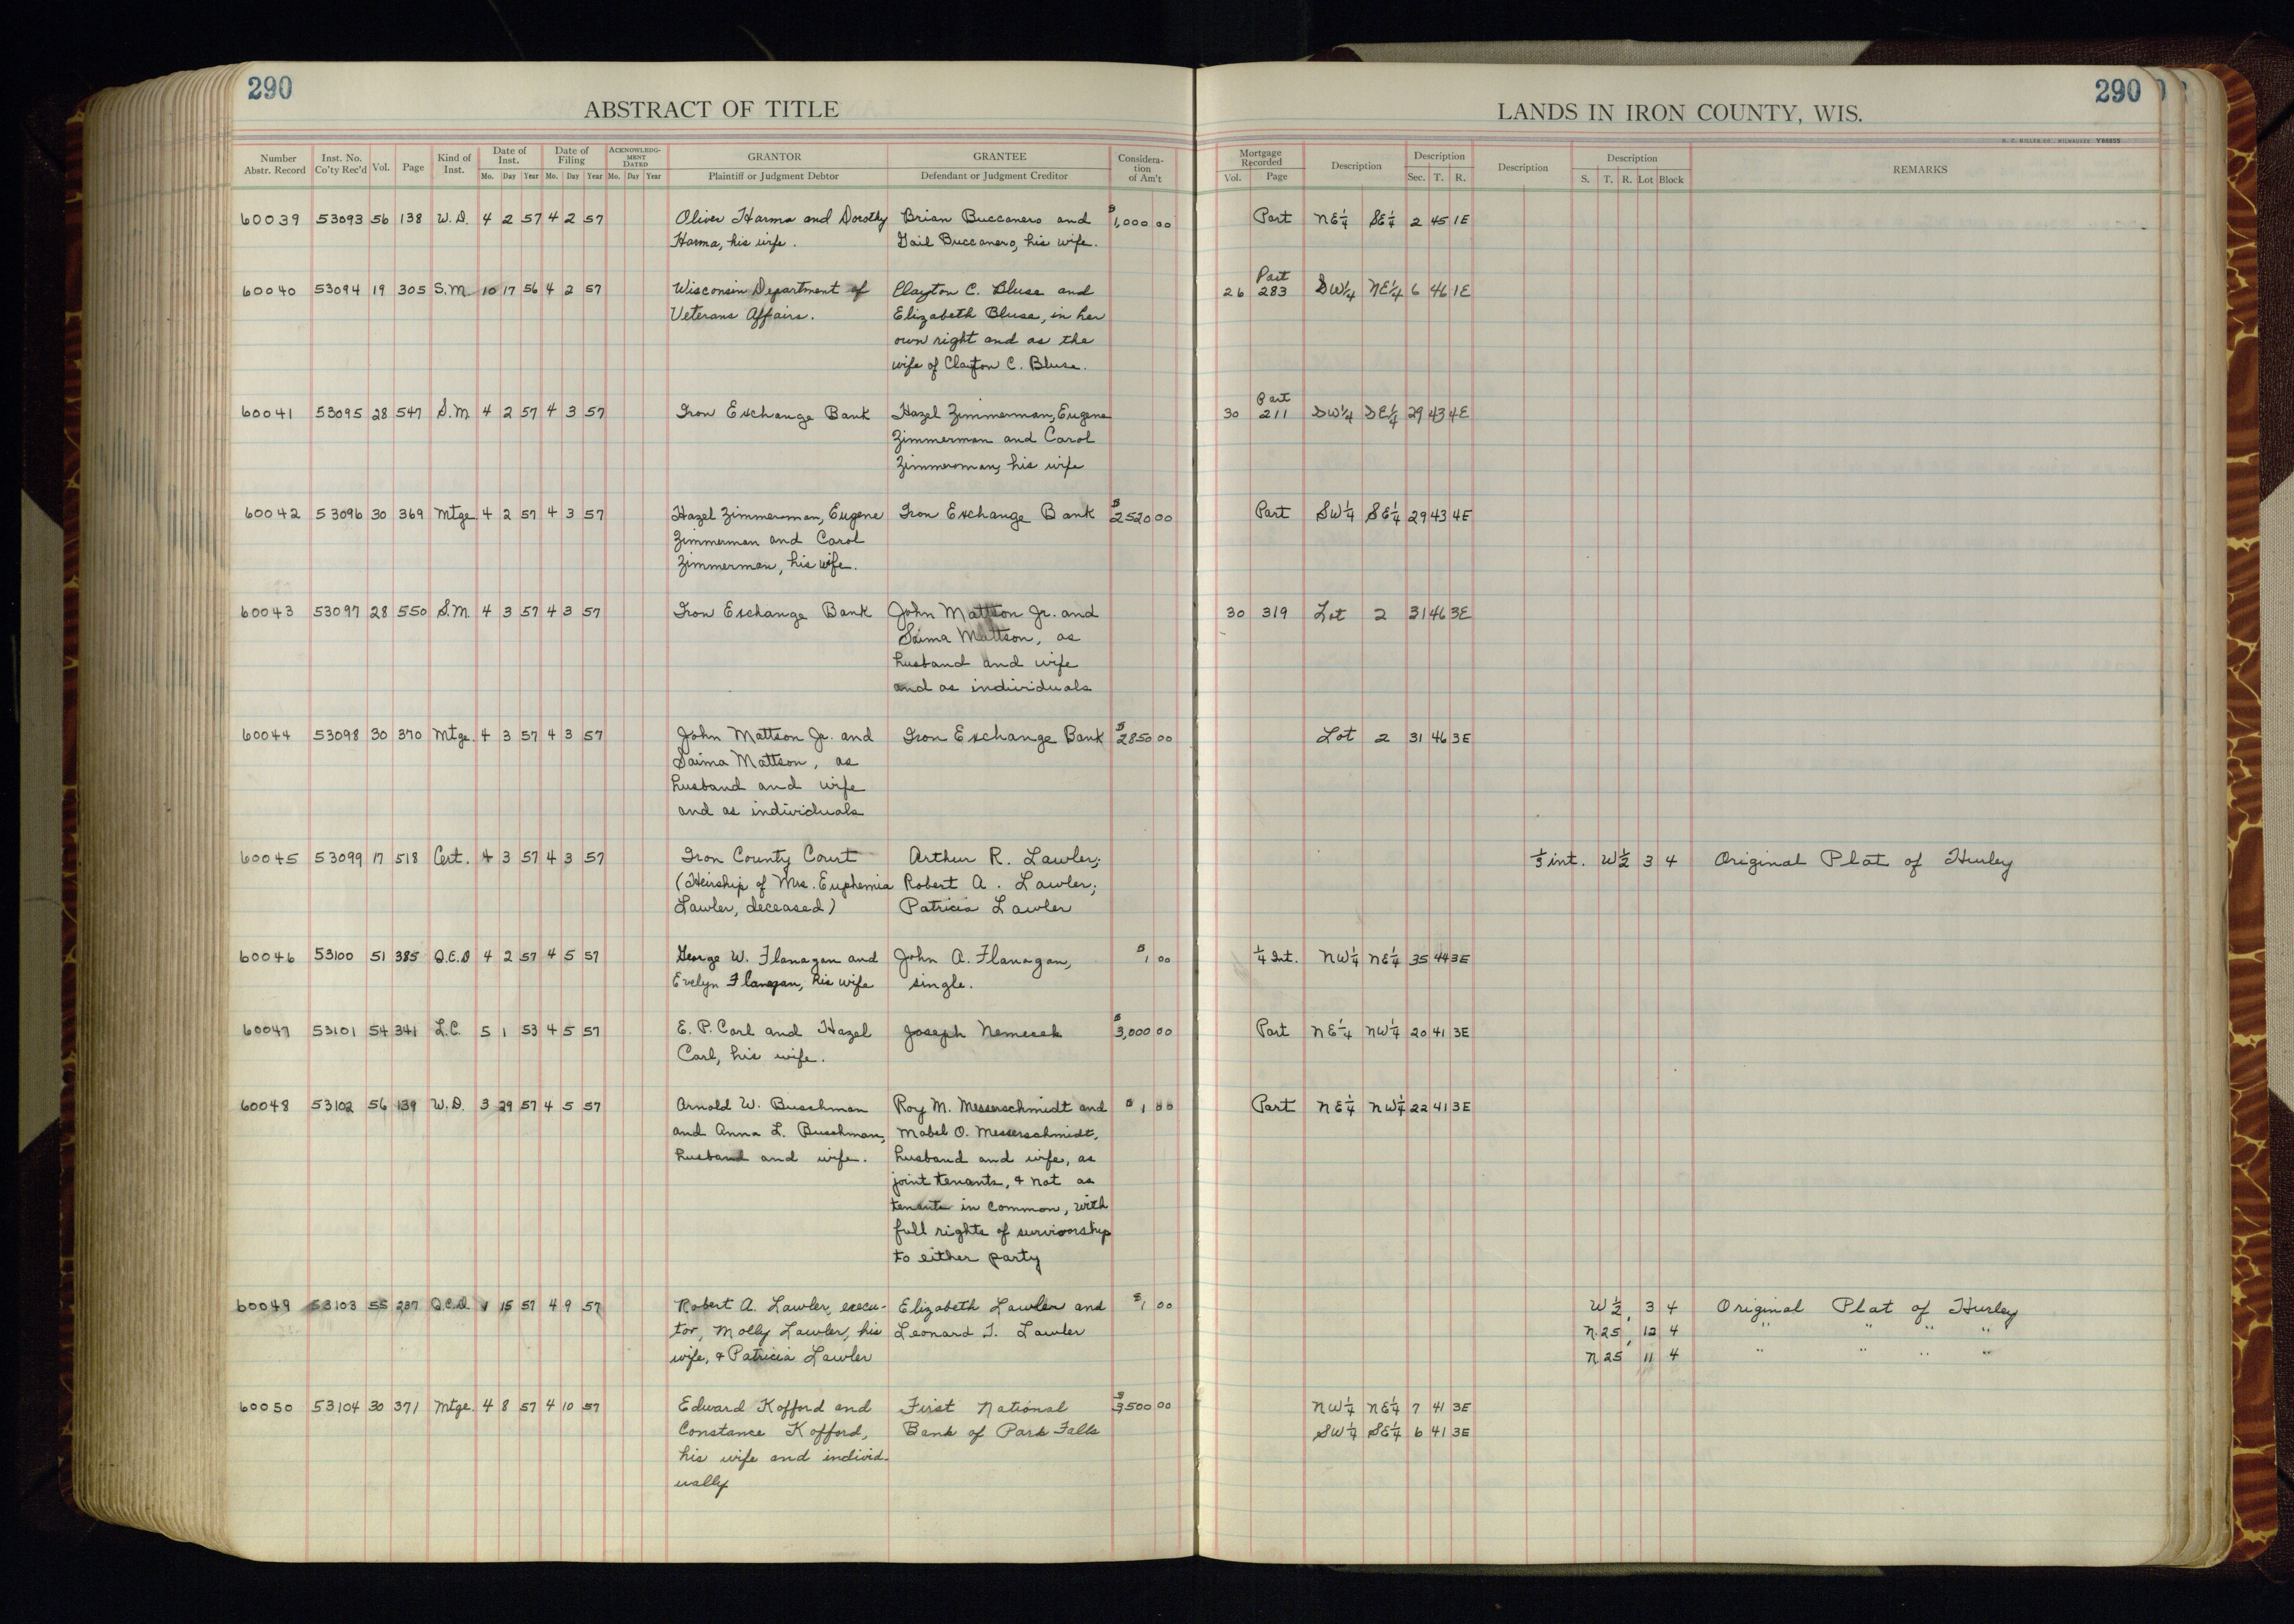 290
ABSTRACT OF TITLE
Number Abstr. Record Inst. No. Co'ty Rec'd Vol. Page Kind of Inst. Date of Inst. Mo. Day Year Date of Filing Mo. Day Year ACKNOWLEDGMENT DATED Mo. Day Year GRANTOR Plaintiff or Judgment Debtor GRANTEE Defendant or Judgment Creditor Consideration of Am't
290
LANDS IN IRON COUNTY, WIS.
H. C. MILLER CO., MILWAUKEE Y66855
Mortgage Recorded Vol. Page Description Description Sec. T. R. Description Description S. T. R. Lot Block REMARKS
60039 53093 56 138 W.D. 4 2 57 4 2 57 Oliver Harma and Dorothy Brian Buccanero and $1,000 00 Part NE¼ SE¼ 2 45 1E
Harma, his wife. Gail Buccanero, his wife.
Part
60040 53094 19 305 S.M. 10 17 56 4 2 57 Wisconsin Department of Clayton C. Bluse and 26 283 SW¼ NE¼ 6 46 1E
Veterans Affairs. Elizabeth Bluse, in her
own right and as the
wife of Clayton C. Bluse.
Part
60041 53095 28 547 S.M. 4 2 57 4 3 57 Iron Exchange Bank Hazel Zimmerman, Eugene 30 211 SW¼ SE¼ 29 43 4E
Zimmerman and Carol
Zimmerman, his wife
60042 53096 30 369 Mtge. 4 2 57 4 3 57 Hazel Zimmerman, Eugene Iron Exchange Bank $2520 00 Part SW¼ SE¼ 29 43 4E
Zimmerman and Carol
Zimmerman, his wife.
60043 53097 28 550 S.M. 4 3 57 4 3 57 Iron Exchange Bank John Mattson Jr. and 30 319 Lot 2 31 46 3E
Saima Mattson, as
husband and wife
and as individuals
60044 53098 30 370 Mtge. 4 3 57 4 3 57 John Mattson Jr. and Iron Exchange Bank $2850 00 Lot 2 31 46 3E
Saima Mattson, as
husband and wife
and as individuals
60045 53099 17 518 Cert. 4 3 57 4 3 57 Iron County Court Arthur R. Lawler; ⅓ int. W½ 3 4 Original Plat of Hurley
(Heirship of Mrs. Euphemia Robert A. Lawler;
Lawler, deceased) Patricia Lawler
60046 53100 51 385 Q.C.D 4 2 57 4 5 57 George W. Flanagan and John A. Flanagan, $1 00 ¼ Int. NW¼ NE¼ 35 44 3E
Evelyn Flanagan, his wife single.
60047 53101 54 341 L.C. 5 1 53 4 5 57 E. P. Carl and Hazel Joseph Nemecek $3,000 00 Part NE¼ NW¼ 20 41 3E
Carl, his wife.
60048 53102 56 139 W.D. 3 29 57 4 5 57 Arnold W. Buschman Roy M. Messerschmidt and $1 00 Part NE¼ NW¼ 22 41 3E
and Anna L. Buschman, Mabel O. Messerschmidt,
husband and wife. husband and wife, as
joint tenants, & not as
tenants in common, with
full rights of survivorship
to either party
60049 53103 55 237 Q.C.D. 1 15 57 4 9 57 Robert A. Lawler, execu- Elizabeth Lawler and $1 00 W½ 3 4 Original Plat of Hurley
tor, Molly Lawler, his Leonard J. Lawler N.25' 12 4 " " " "
wife, & Patricia Lawler N.25' 11 4 " " " "
60050 53104 30 371 Mtge. 4 8 57 4 10 57 Edward Kofford and First National $3,500 00 NW¼ NE¼ 7 41 3E
Constance Kofford, Bank of Park Falls SW¼ SE¼ 6 41 3E
his wife and individ-
ually